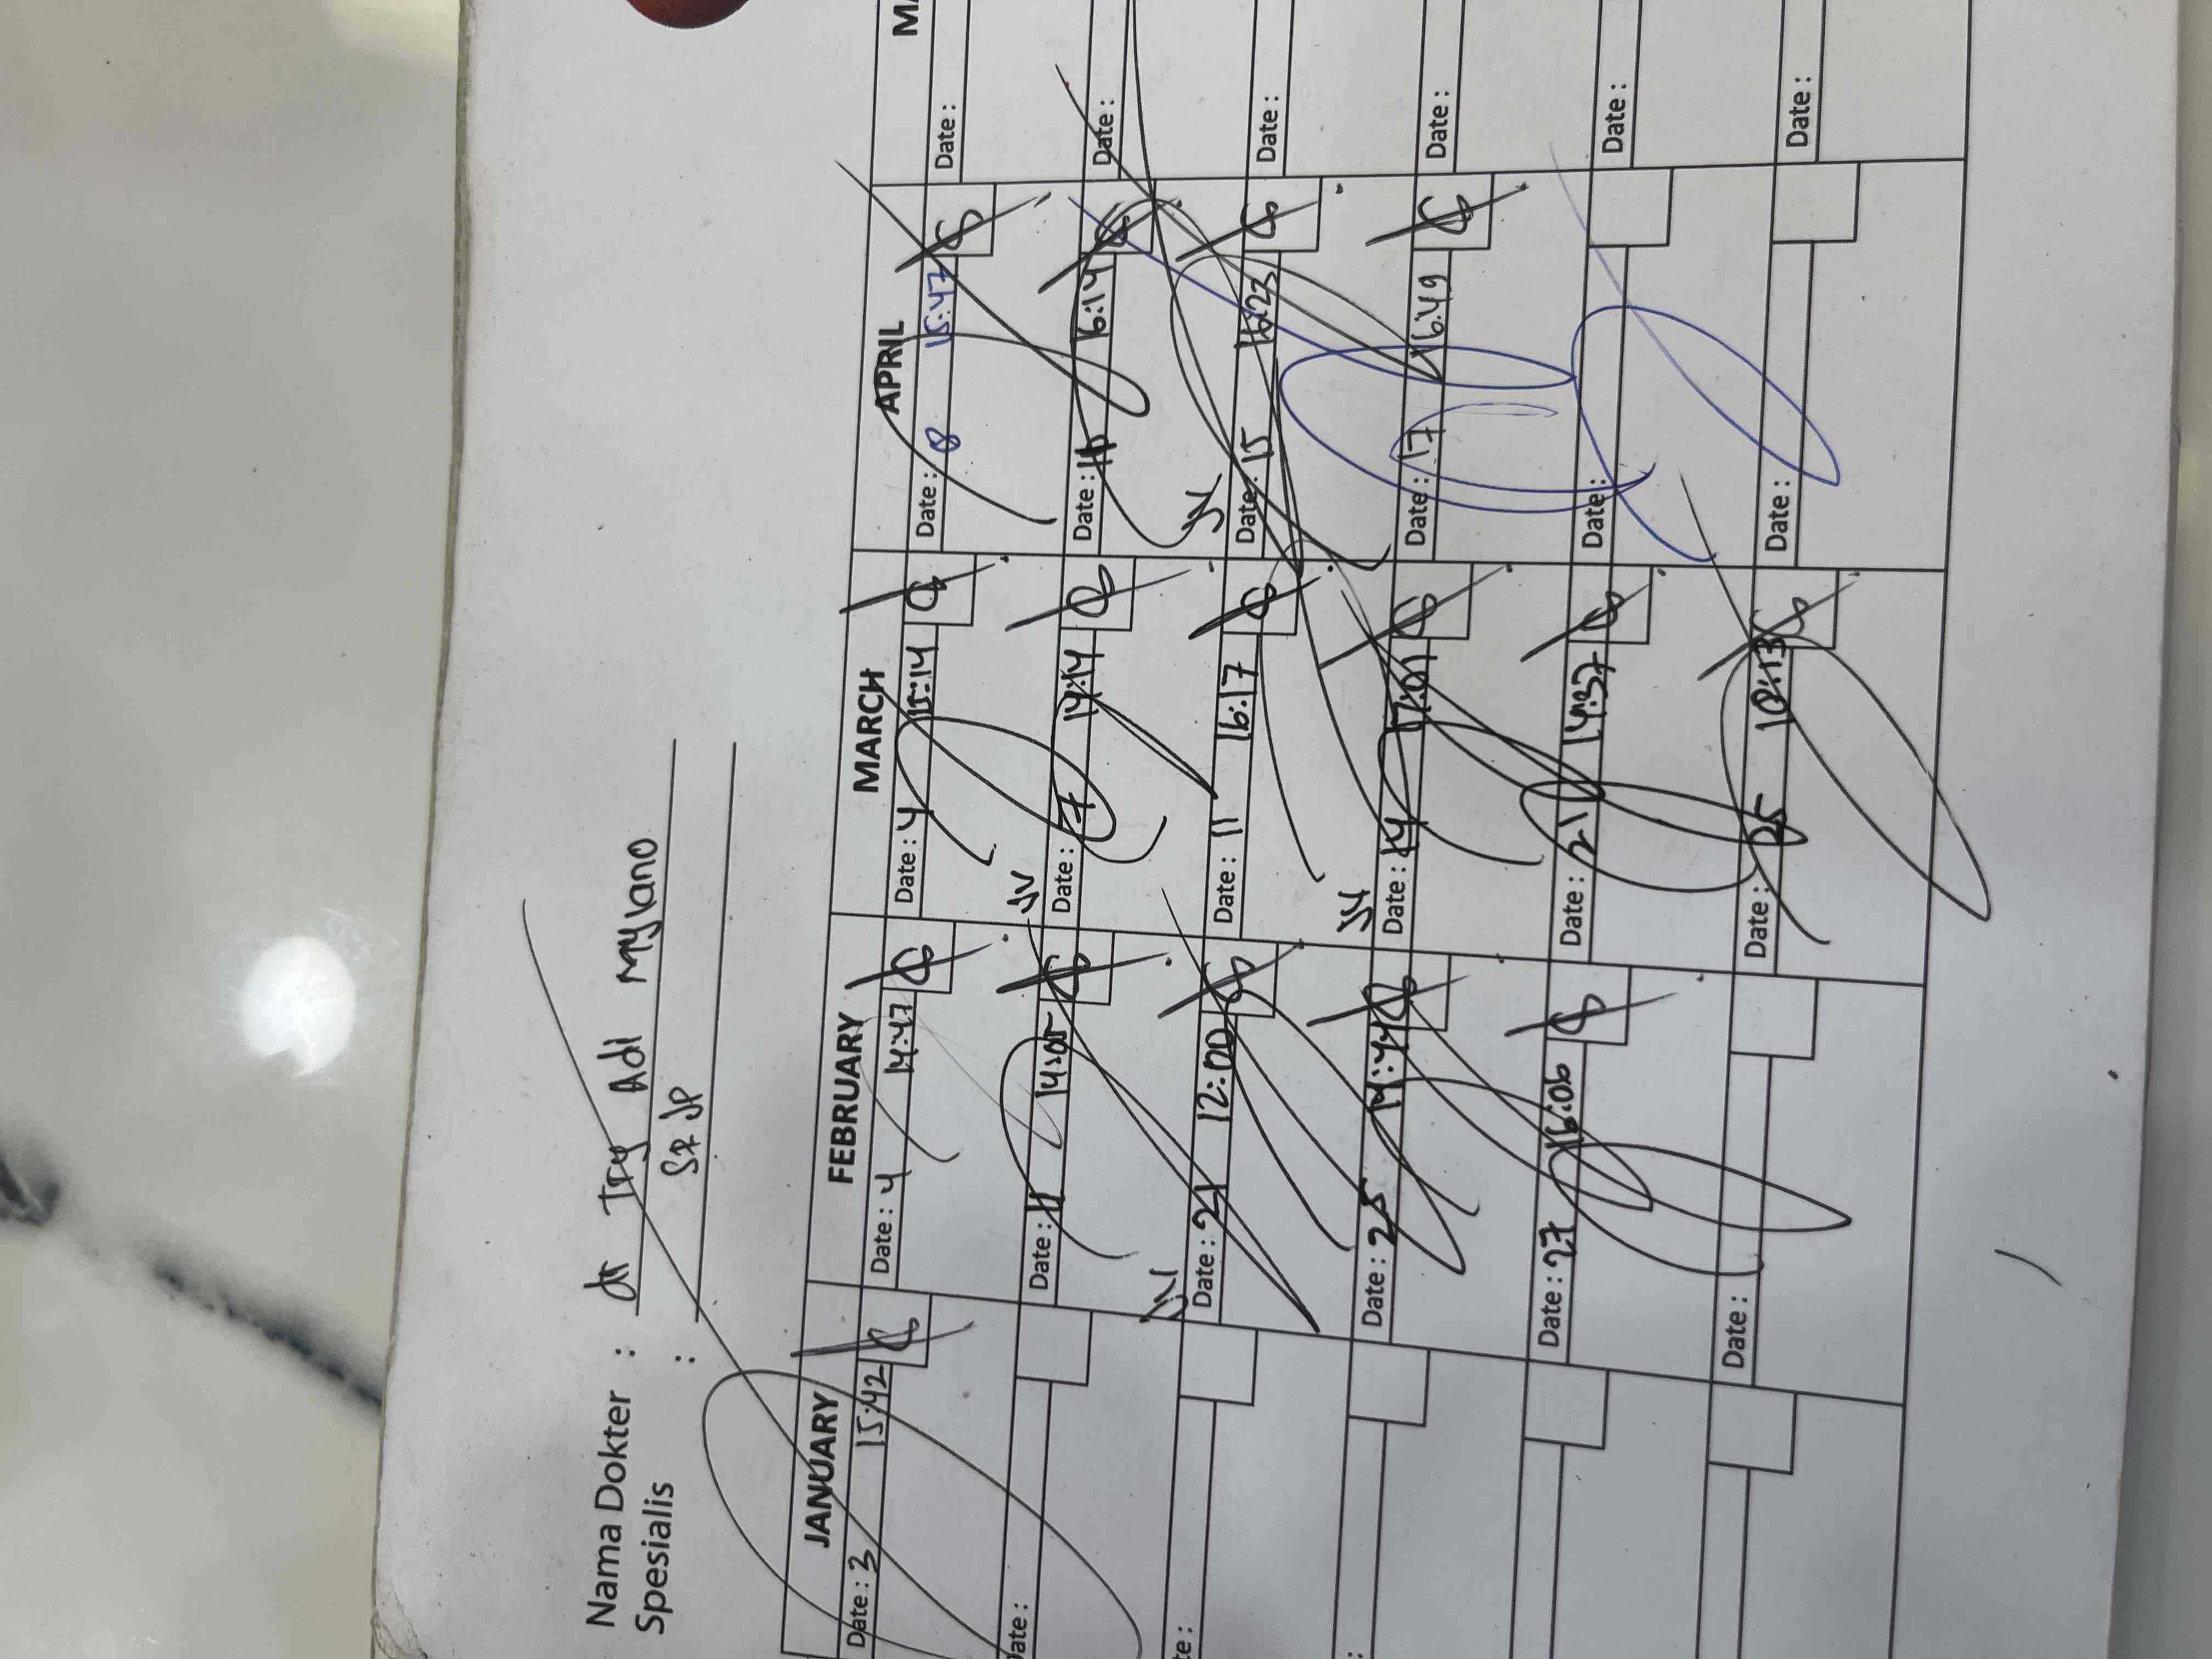 Nama Dokter : dr Try Adi Mylano
Spesialis : SpJP
JANUARY FEBRUARY MARCH APRIL
Date : 3 15:42 Date : 4 14:47 Date : 4 15:14 Date : 8 15:47 Date :
Date : Date : 11 14:05 Date : 7 14:14 Date : 11 16:14 Date :
Date : 21 12:00 Date : 11 16:17 Date : 15 16:23 Date :
Date : 25 14:44 Date : 14 17:01 Date : 17 16:49 Date :
Date : 27 16:06 Date : 21 14:37 Date : Date :
Date : Date : 25 10:13 Date : Date :